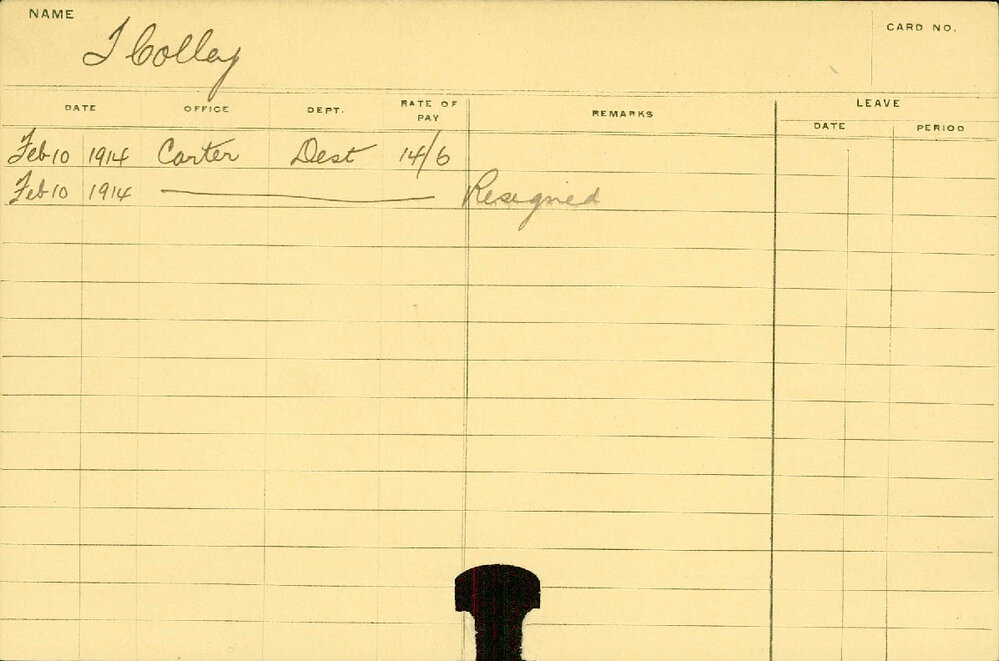 NAME
J Colley
CARD NO.
DATE OFFICE DEPT. RATE OF PAY REMARKS LEAVE
DATE PERIOD
Feb 10 1914 Carter Dest 14/6
Feb 10 1914 Resigned